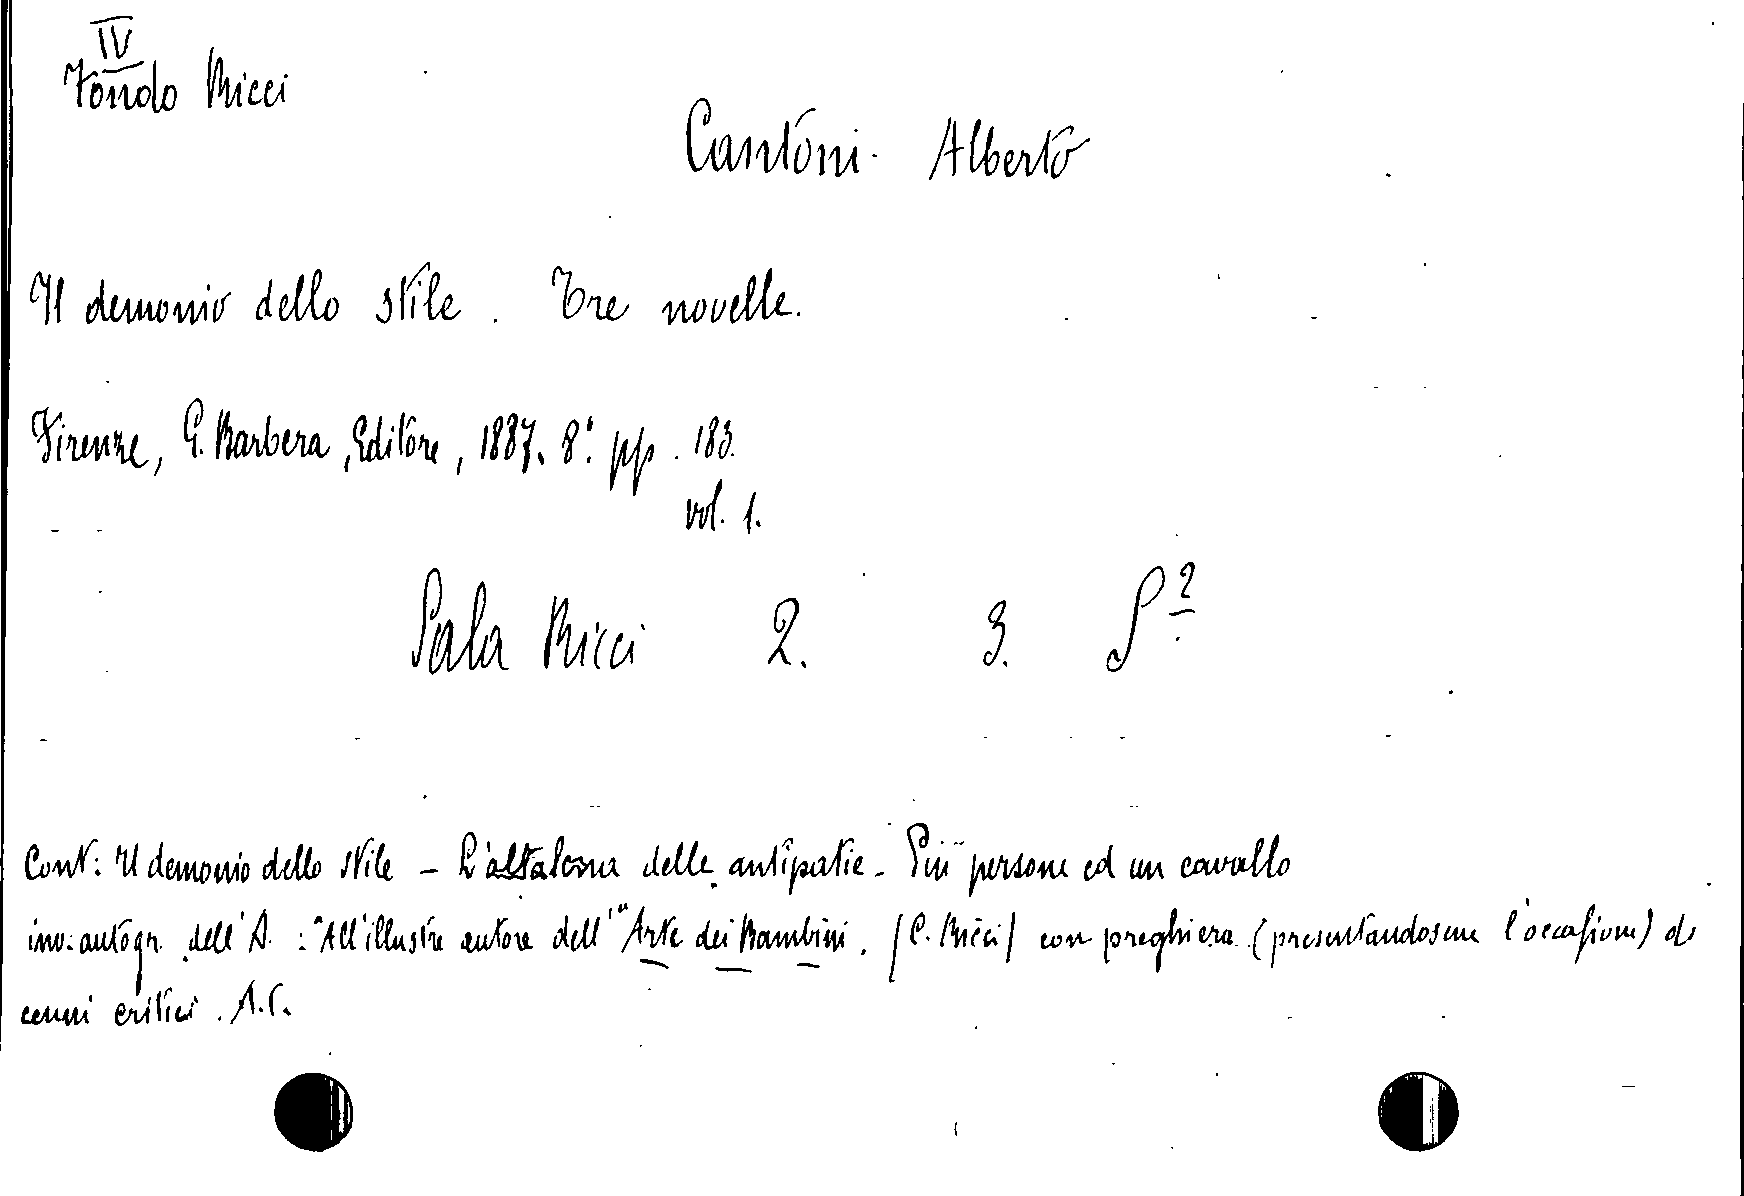 IV
Fondo Ricci
Cantoni Alberto
Il demonio dello stile. Tre novelle.
Firenze, G. Barbera, Editore, 1887. 8° pp. 183.
vol. 1.
Sala Ricci 2. 3. S²
Cont: Il demonio dello stile – L'altalena delle antipatie – Più persone ed un cavallo
inv: autogr. dell'A. : "All'illustre autore dell'"Arte dei Bambini. [C. Ricci] con preghiera (presentandosene l'occasione) di
cenni critici. A.C.